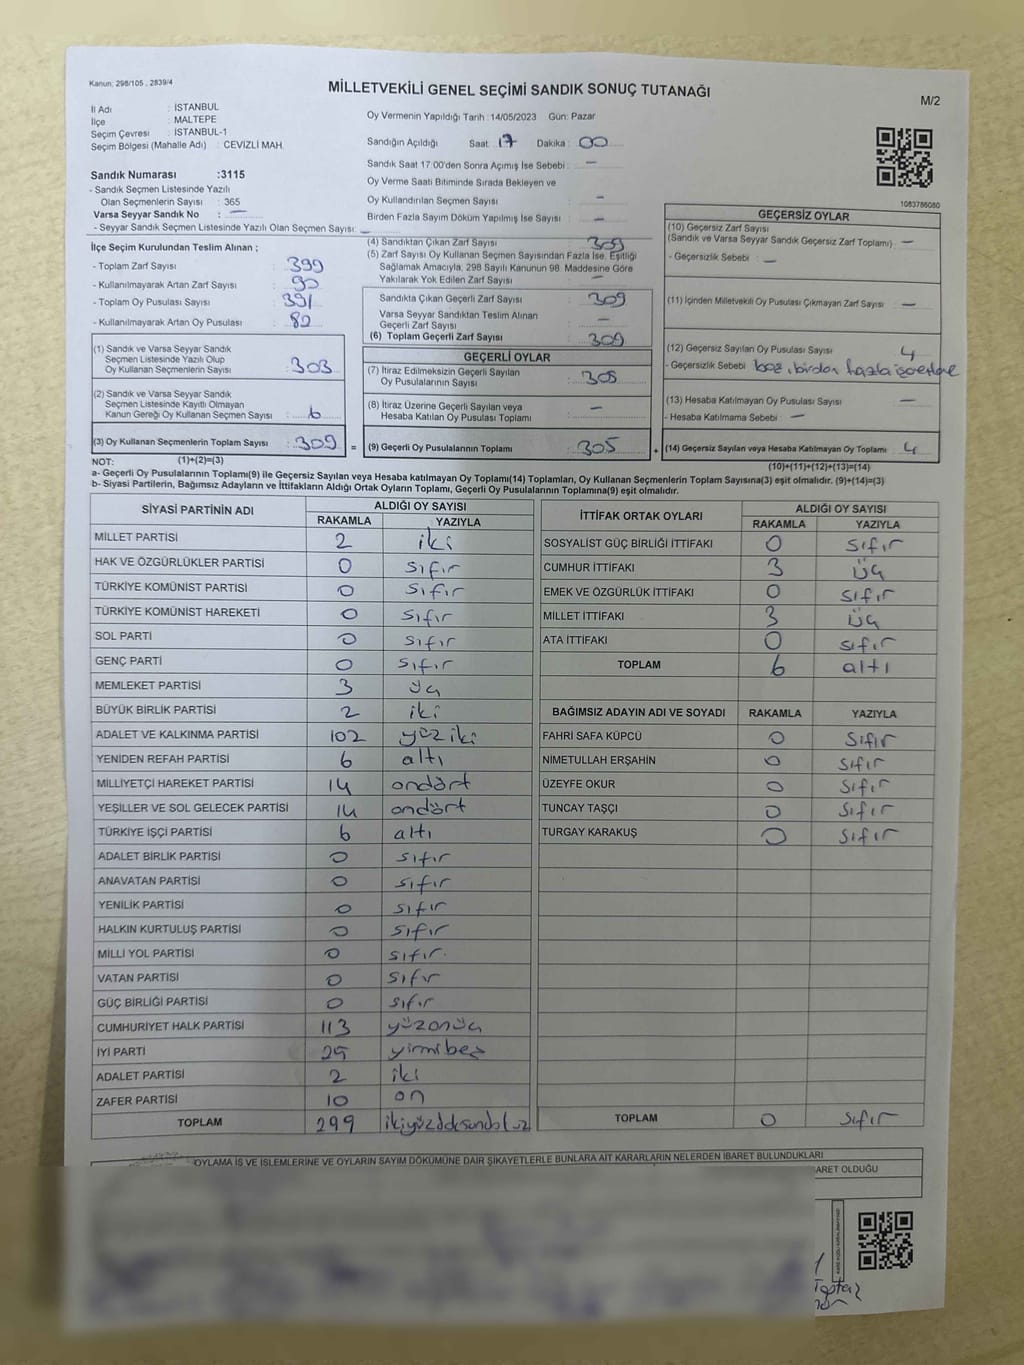 Kanun; 298/105 , 2839/4
MİLLETVEKİLİ GENEL SEÇİMİ SANDIK SONUÇ TUTANAĞI
M/2
İl Adı : İSTANBUL
İlçe : MALTEPE
Seçim Çevresi : İSTANBUL-1
Seçim Bölgesi (Mahalle Adı) : CEVİZLİ MAH.
Oy Vermenin Yapıldığı Tarih : 14/05/2023 Gün: Pazar
Sandığın Açıldığı Saat : 17 Dakika : 00
Sandık Saat 17:00'den Sonra Açımış İse Sebebi : —
Oy Verme Saati Bitiminde Sırada Bekleyen ve
Oy Kullandırılan Seçmen Sayısı : —
Birden Fazla Sayım Döküm Yapılmış İse Sayısı : —
Sandık Numarası :3115
- Sandık Seçmen Listesinde Yazılı
Olan Seçmenlerin Sayısı : 365
Varsa Seyyar Sandık No : —
- Seyyar Sandık Seçmen Listesinde Yazılı Olan Seçmen Sayısı: —
1083786080
İlçe Seçim Kurulundan Teslim Alınan ;
- Toplam Zarf Sayısı : 399
- Kullanılmayarak Artan Zarf Sayısı : 90
- Toplam Oy Pusulası Sayısı : 391
- Kullanılmayarak Artan Oy Pusulası : 82
(1) Sandık ve Varsa Seyyar Sandık
Seçmen Listesinde Yazılı Olup
Oy Kullanan Seçmenlerin Sayısı : 303
(2) Sandık ve Varsa Seyyar Sandık
Seçmen Listesinde Kayıtlı Olmayan
Kanun Gereği Oy Kullanan Seçmen Sayısı : 6
(3) Oy Kullanan Seçmenlerin Toplam Sayısı : 309 =
(1)+(2)=(3)
(4) Sandıktan Çıkan Zarf Sayısı : 309
(5) Zarf Sayısı Oy Kullanan Seçmen Sayısından Fazla İse, Eşitliği
Sağlamak Amacıyla, 298 Sayılı Kanunun 98. Maddesine Göre
Yakılarak Yok Edilen Zarf Sayısı : —
Sandıkta Çıkan Geçerli Zarf Sayısı : 309
Varsa Seyyar Sandıktan Teslim Alınan
Geçerli Zarf Sayısı : —
(6) Toplam Geçerli Zarf Sayısı : 309
GEÇERLİ OYLAR
(7) İtiraz Edilmeksizin Geçerli Sayılan
Oy Pusulalarının Sayısı : 305
(8) İtiraz Üzerine Geçerli Sayılan veya
Hesaba Katılan Oy Pusulası Toplamı : —
(9) Geçerli Oy Pusulalarının Toplamı : 305 +
GEÇERSİZ OYLAR
(10) Geçersiz Zarf Sayısı
(Sandık ve Varsa Seyyar Sandık Geçersiz Zarf Toplamı) : —
- Geçersizlik Sebebi : —
(11) İçinden Milletvekili Oy Pusulası Çıkmayan Zarf Sayısı : —
(12) Geçersiz Sayılan Oy Pusulası Sayısı : 4
- Geçersizlik Sebebi : boş, birden fazla
(13) Hesaba Katılmayan Oy Pusulası Sayısı : —
- Hesaba Katılmama Sebebi : —
(14) Geçersiz Sayılan veya Hesaba Katılmayan Oy Toplamı : 4
(10)+(11)+(12)+(13)=(14)
NOT:
a- Geçerli Oy Pusulalarının Toplamı(9) ile Geçersiz Sayılan veya Hesaba katılmayan Oy Toplamı(14) Toplamları, Oy Kullanan Seçmenlerin Toplam Sayısına(3) eşit olmalıdır. (9)+(14)=(3)
b- Siyasi Partilerin, Bağımsız Adayların ve İttifakların Aldığı Ortak Oyların Toplamı, Geçerli Oy Pusulalarının Toplamına(9) eşit olmalıdır.
SİYASİ PARTİNİN ADI ALDIĞI OY SAYISI
RAKAMLA YAZIYLA
MİLLET PARTİSİ 2 iki
HAK VE ÖZGÜRLÜKLER PARTİSİ 0 sıfır
TÜRKİYE KOMÜNİST PARTİSİ 0 sıfır
TÜRKİYE KOMÜNİST HAREKETİ 0 sıfır
SOL PARTİ 0 sıfır
GENÇ PARTİ 0 sıfır
MEMLEKET PARTİSİ 3 üç
BÜYÜK BİRLİK PARTİSİ 2 iki
ADALET VE KALKINMA PARTİSİ 102 yüziki
YENİDEN REFAH PARTİSİ 6 altı
MİLLİYETÇİ HAREKET PARTİSİ 14 ondört
YEŞİLLER VE SOL GELECEK PARTİSİ 14 ondört
TÜRKİYE İŞÇİ PARTİSİ 6 altı
ADALET BİRLİK PARTİSİ 0 sıfır
ANAVATAN PARTİSİ 0 sıfır
YENİLİK PARTİSİ 0 sıfır
HALKIN KURTULUŞ PARTİSİ 0 sıfır
MİLLİ YOL PARTİSİ 0 sıfır
VATAN PARTİSİ 0 sıfır
GÜÇ BİRLİĞİ PARTİSİ 0 sıfır
CUMHURİYET HALK PARTİSİ 113 yüzonüç
İYİ PARTİ 25 yirmibeş
ADALET PARTİSİ 2 iki
ZAFER PARTİSİ 10 on
TOPLAM 299
İTTİFAK ORTAK OYLARI ALDIĞI OY SAYISI
RAKAMLA YAZIYLA
SOSYALİST GÜÇ BİRLİĞİ İTTİFAKI 0 sıfır
CUMHUR İTTİFAKI 3 üç
EMEK VE ÖZGÜRLÜK İTTİFAKI 0 sıfır
MİLLET İTTİFAKI 3 üç
ATA İTTİFAKI 0 sıfır
TOPLAM 6 altı
BAĞIMSIZ ADAYIN ADI VE SOYADI RAKAMLA YAZIYLA
FAHRİ SAFA KÜPCÜ 0 sıfır
NİMETULLAH ERŞAHİN 0 sıfır
ÜZEYFE OKUR 0 sıfır
TUNCAY TAŞÇI 0 sıfır
TURGAY KARAKUŞ 0 sıfır
TOPLAM 0 sıfır
OYLAMA İŞ VE İŞLEMLERİNE VE OYLARIN SAYIM DÖKÜMÜNE DAİR ŞİKAYETLERLE BUNLARA AİT KARARLARIN NELERDEN İBARET BULUNDUKLARI
ARET OLDUĞU